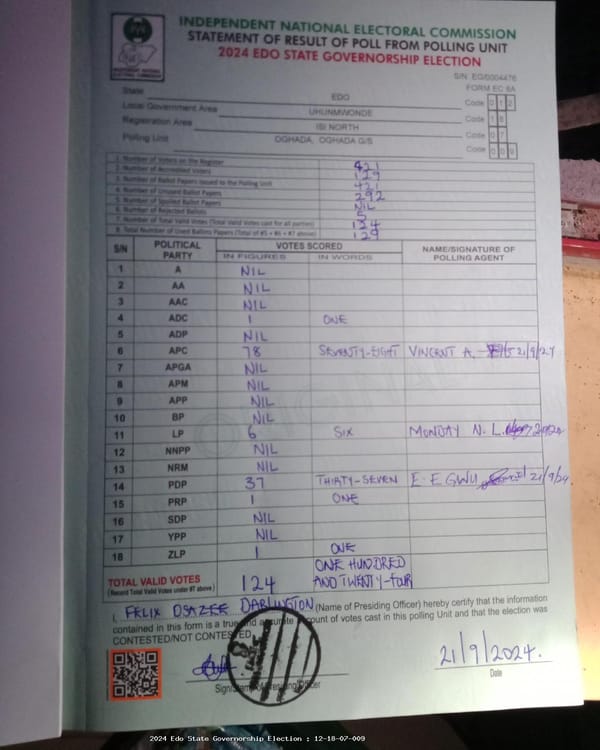 INDEPENDENT NATIONAL ELECTORAL COMMISSION
STATEMENT OF RESULT OF POLL FROM POLLING UNIT
2024 EDO STATE GOVERNORSHIP ELECTION
S/N. EG/0004476
FORM EC 8A
State EDO Code 0 1 2
Local Government Area UHUNMWONDE Code 1 8
Registration Area ISI NORTH Code 0 7
Polling Unit OGHADA, OGHADA G/S Code 0 0 9
1. Number of Voters on the Register 421
2. Number of Accredited Voters 129
3. Number of Ballot Papers Issued to the Polling Unit 421
4. Number of Unused Ballot Papers 292
5. Number of Spoiled Ballot Papers NIL
6. Number of Rejected Ballots 5
7. Number of Total Valid Votes (Total Valid Votes cast for all parties) 124
8. Total Number of Used Ballots Papers (Total of #5 + #6 + #7 above) 129
S/N POLITICAL PARTY VOTES SCORED NAME/SIGNATURE OF POLLING AGENT
IN FIGURES IN WORDS
1 A NIL
2 AA NIL
3 AAC NIL
4 ADC 1 ONE
5 ADP NIL
6 APC 78 SEVENTY-EIGHT VINCENT A. 21/9/24
7 APGA NIL
8 APM NIL
9 APP NIL
10 BP NIL
11 LP 6 SIX MONDAY N. L.
12 NNPP NIL
13 NRM NIL
14 PDP 37 THIRTY-SEVEN E. EGWU 21/9/24.
15 PRP 1 ONE
16 SDP NIL
17 YPP NIL
18 ZLP 1 ONE
TOTAL VALID VOTES 124 ONE HUNDRED AND TWENTY-FOUR
(Record Total Valid Votes under #7 above)
I, FELIX OSAZEE DARLINGTON (Name of Presiding Officer) hereby certify that the information
contained in this form is a true and accurate account of votes cast in this polling Unit and that the election was
CONTESTED/NOT CONTESTED.
21/9/2024.
Sign/Stamp of Presiding Officer Date
2024 Edo State Governorship Election : 12-18-07-009